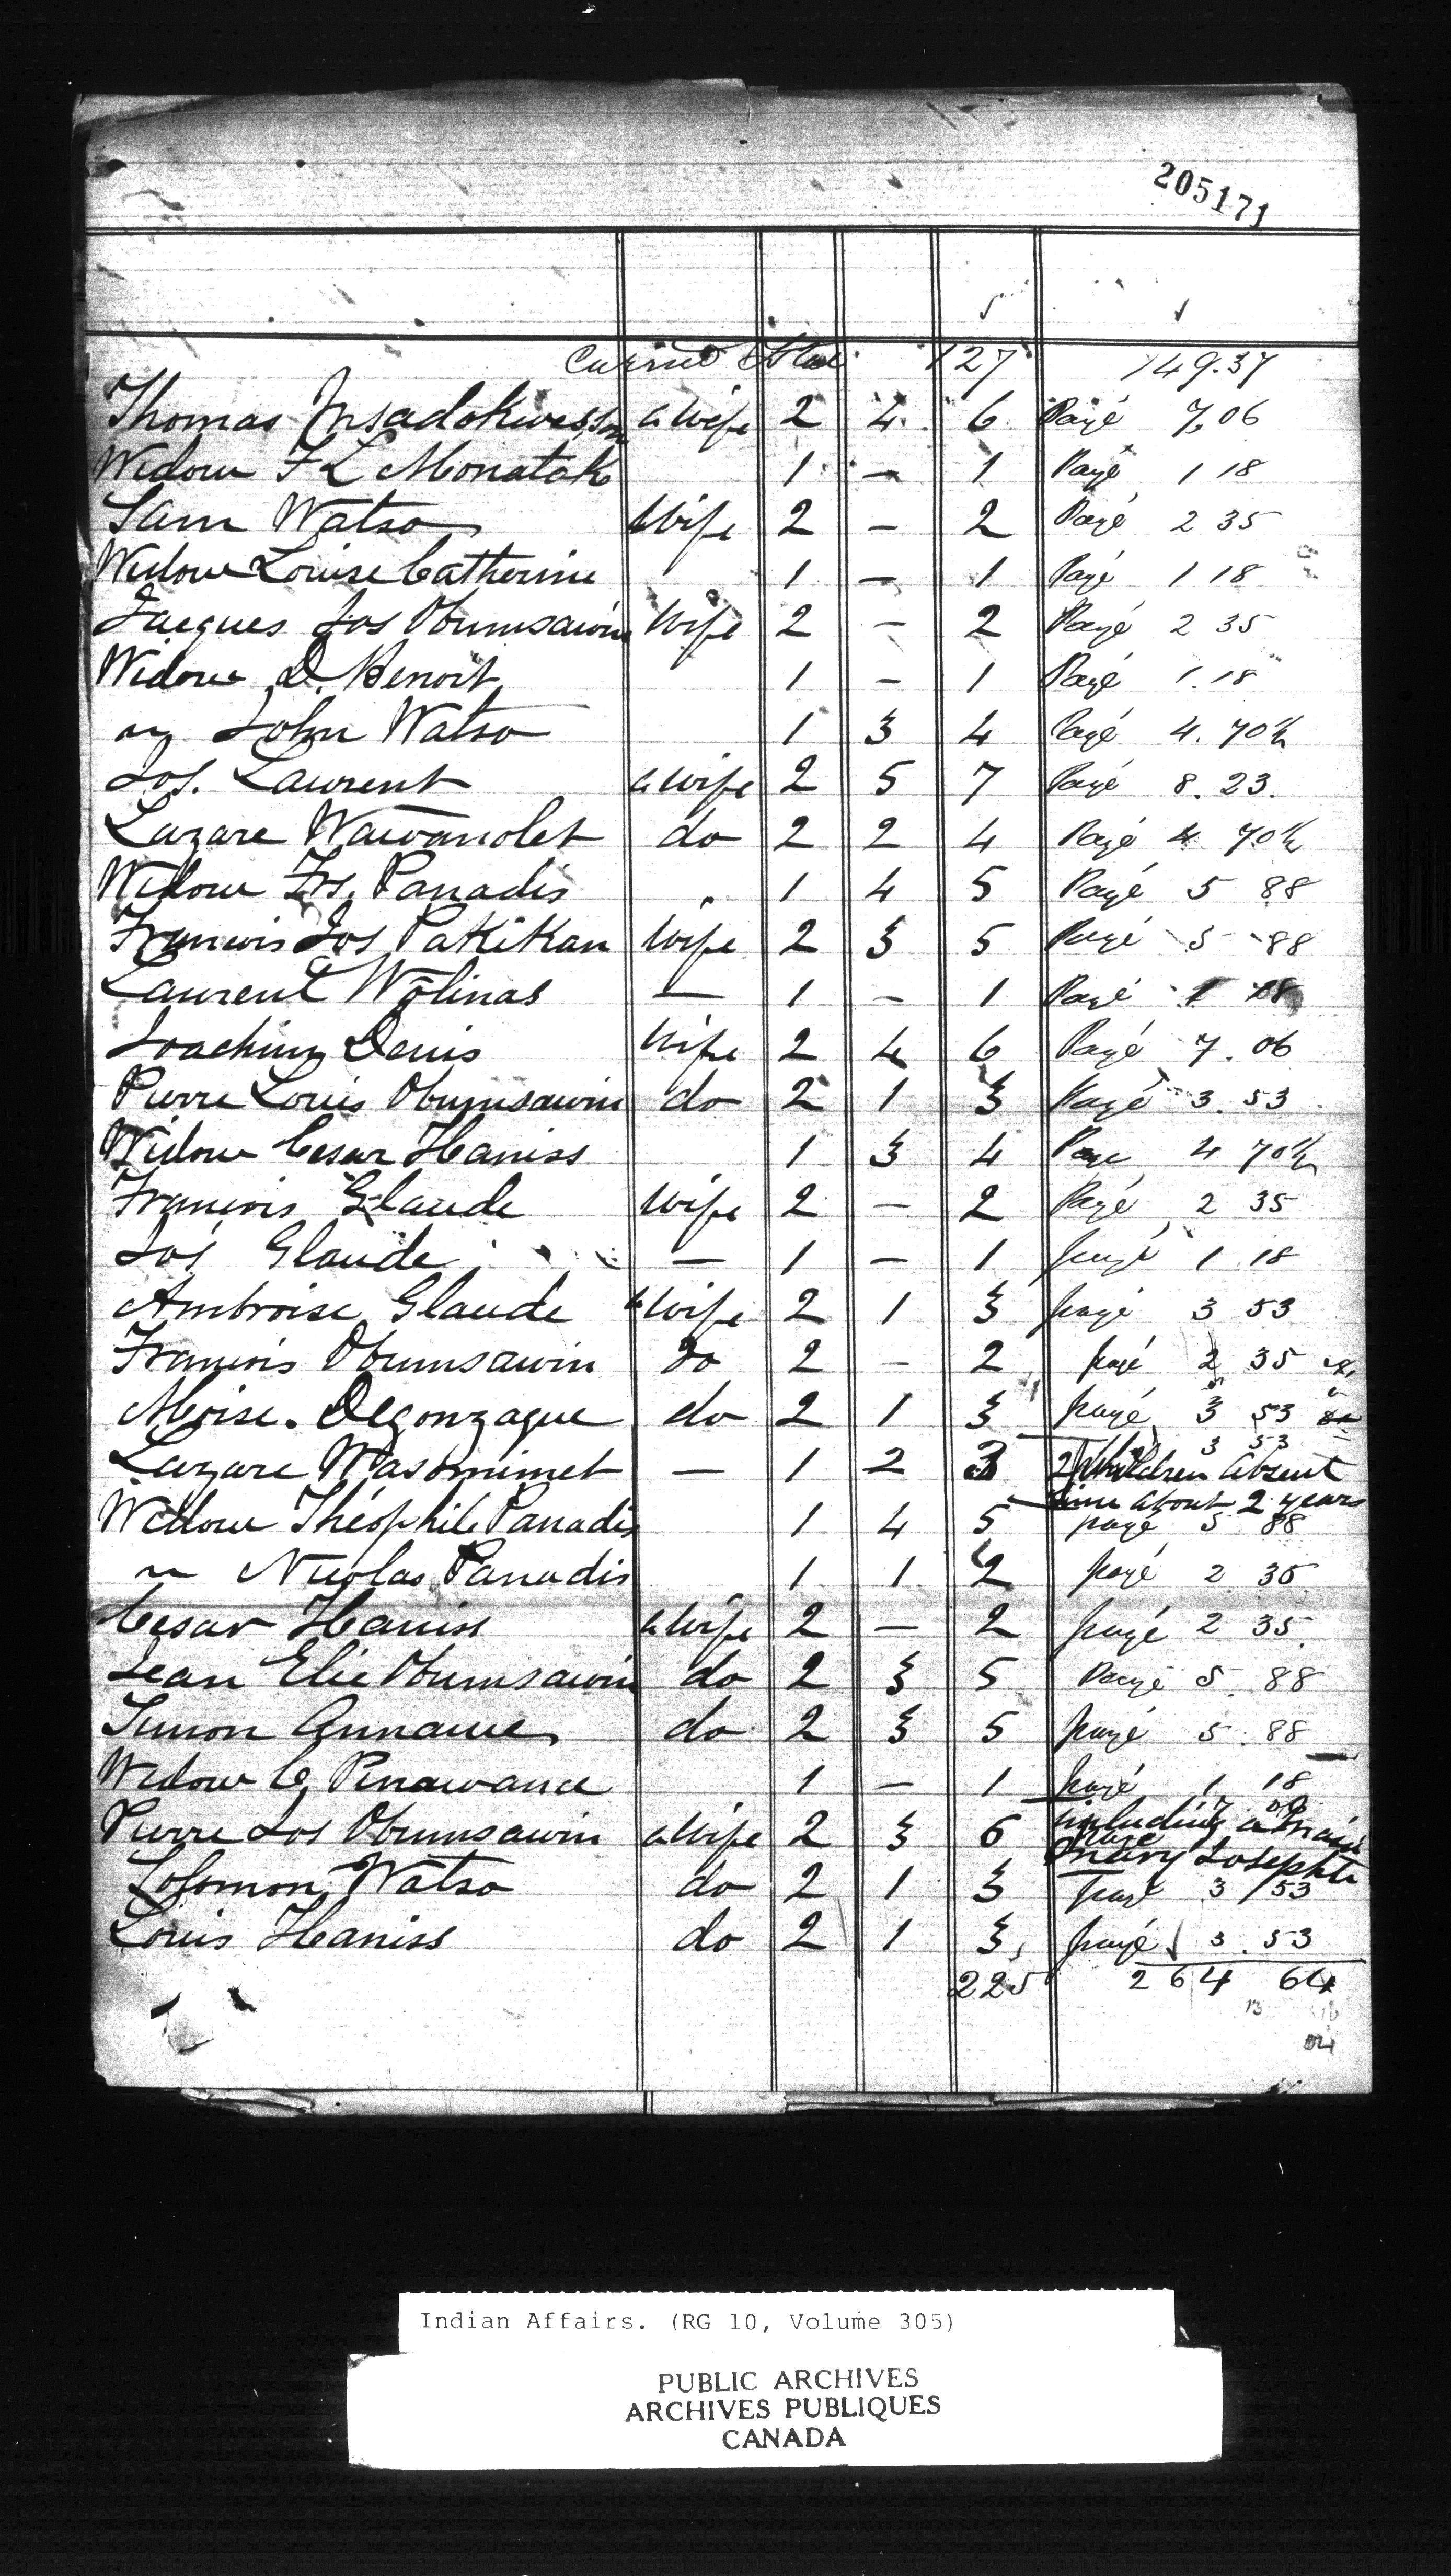 205171
127 149.37
Thomas Msadokwes & wife 2 4 6 Payé 7,06
Widow F L Monatok 1 — 1 Payé 1 18
Sam Watso & Wife 2 — 2 Payé 2 35
Widow Louise Catherine 1 — 1 Payé 1 18
Jacques Jos Obumsawin Wife 2 — 2 Payé 2 35
Widow D. Benoit 1 — 1 Payé 1.18
" John Watso 1 3 4 Payé 4.70½
Jos. Laurent & wife 2 5 7 Payé 8.23.
Lazare Wawanolet do 2 2 4 Payé 4 70½
Widow Frs. Panadis 1 4 5 Payé 5 88
Francois Jos Pakikan Wife 2 3 5 Payé 5 88
Laurent Wolinas — 1 — 1 Payé 1 18
Joachim Denis Wife 2 4 6 Payé 7.06
Pierre Louis Obumsawin do 2 1 3 Payé 3.53
Widow Cesar Haniss 1 3 4 Paye 4 70½
François Glaude Wife 2 — 2 Payé 2 35
Jos Glaude — 1 — 1 payé 1 18
Ambroise Glaude & Wife 2 1 3 payé 3 53
Francois Obumsawin do 2 — 2 payé 2 35
Moise. Degonzague do 2 1 3 payé 3 53
3 53
Lazare Wasominet — 1 2 3 2 Children absent
since about 2 years
Widow Théophile Panadis 1 4 5 payé 5 88
" Nicolas Panadis 1 1 2 payé 2 35
Cesar Haniss & Wife 2 — 2 payé 2 35
Jean Elie Obumsawin do 2 3 5 Payé 5.88
Simon Annance do 2 3 5 payé 5.88
Widow C, Penawance 1 — 1 payé 1 18
Pierre Jos Obumsawin & Wife 2 3 6 including a
Mary Josephte
Solomon Watso do 2 1 3 payé 3 53
Louis Haniss do 2 1 3, payé 3.53
225 264 64
Indian Affairs. (RG 10, Volume 305)
PUBLIC ARCHIVES
ARCHIVES PUBLIQUES
CANADA